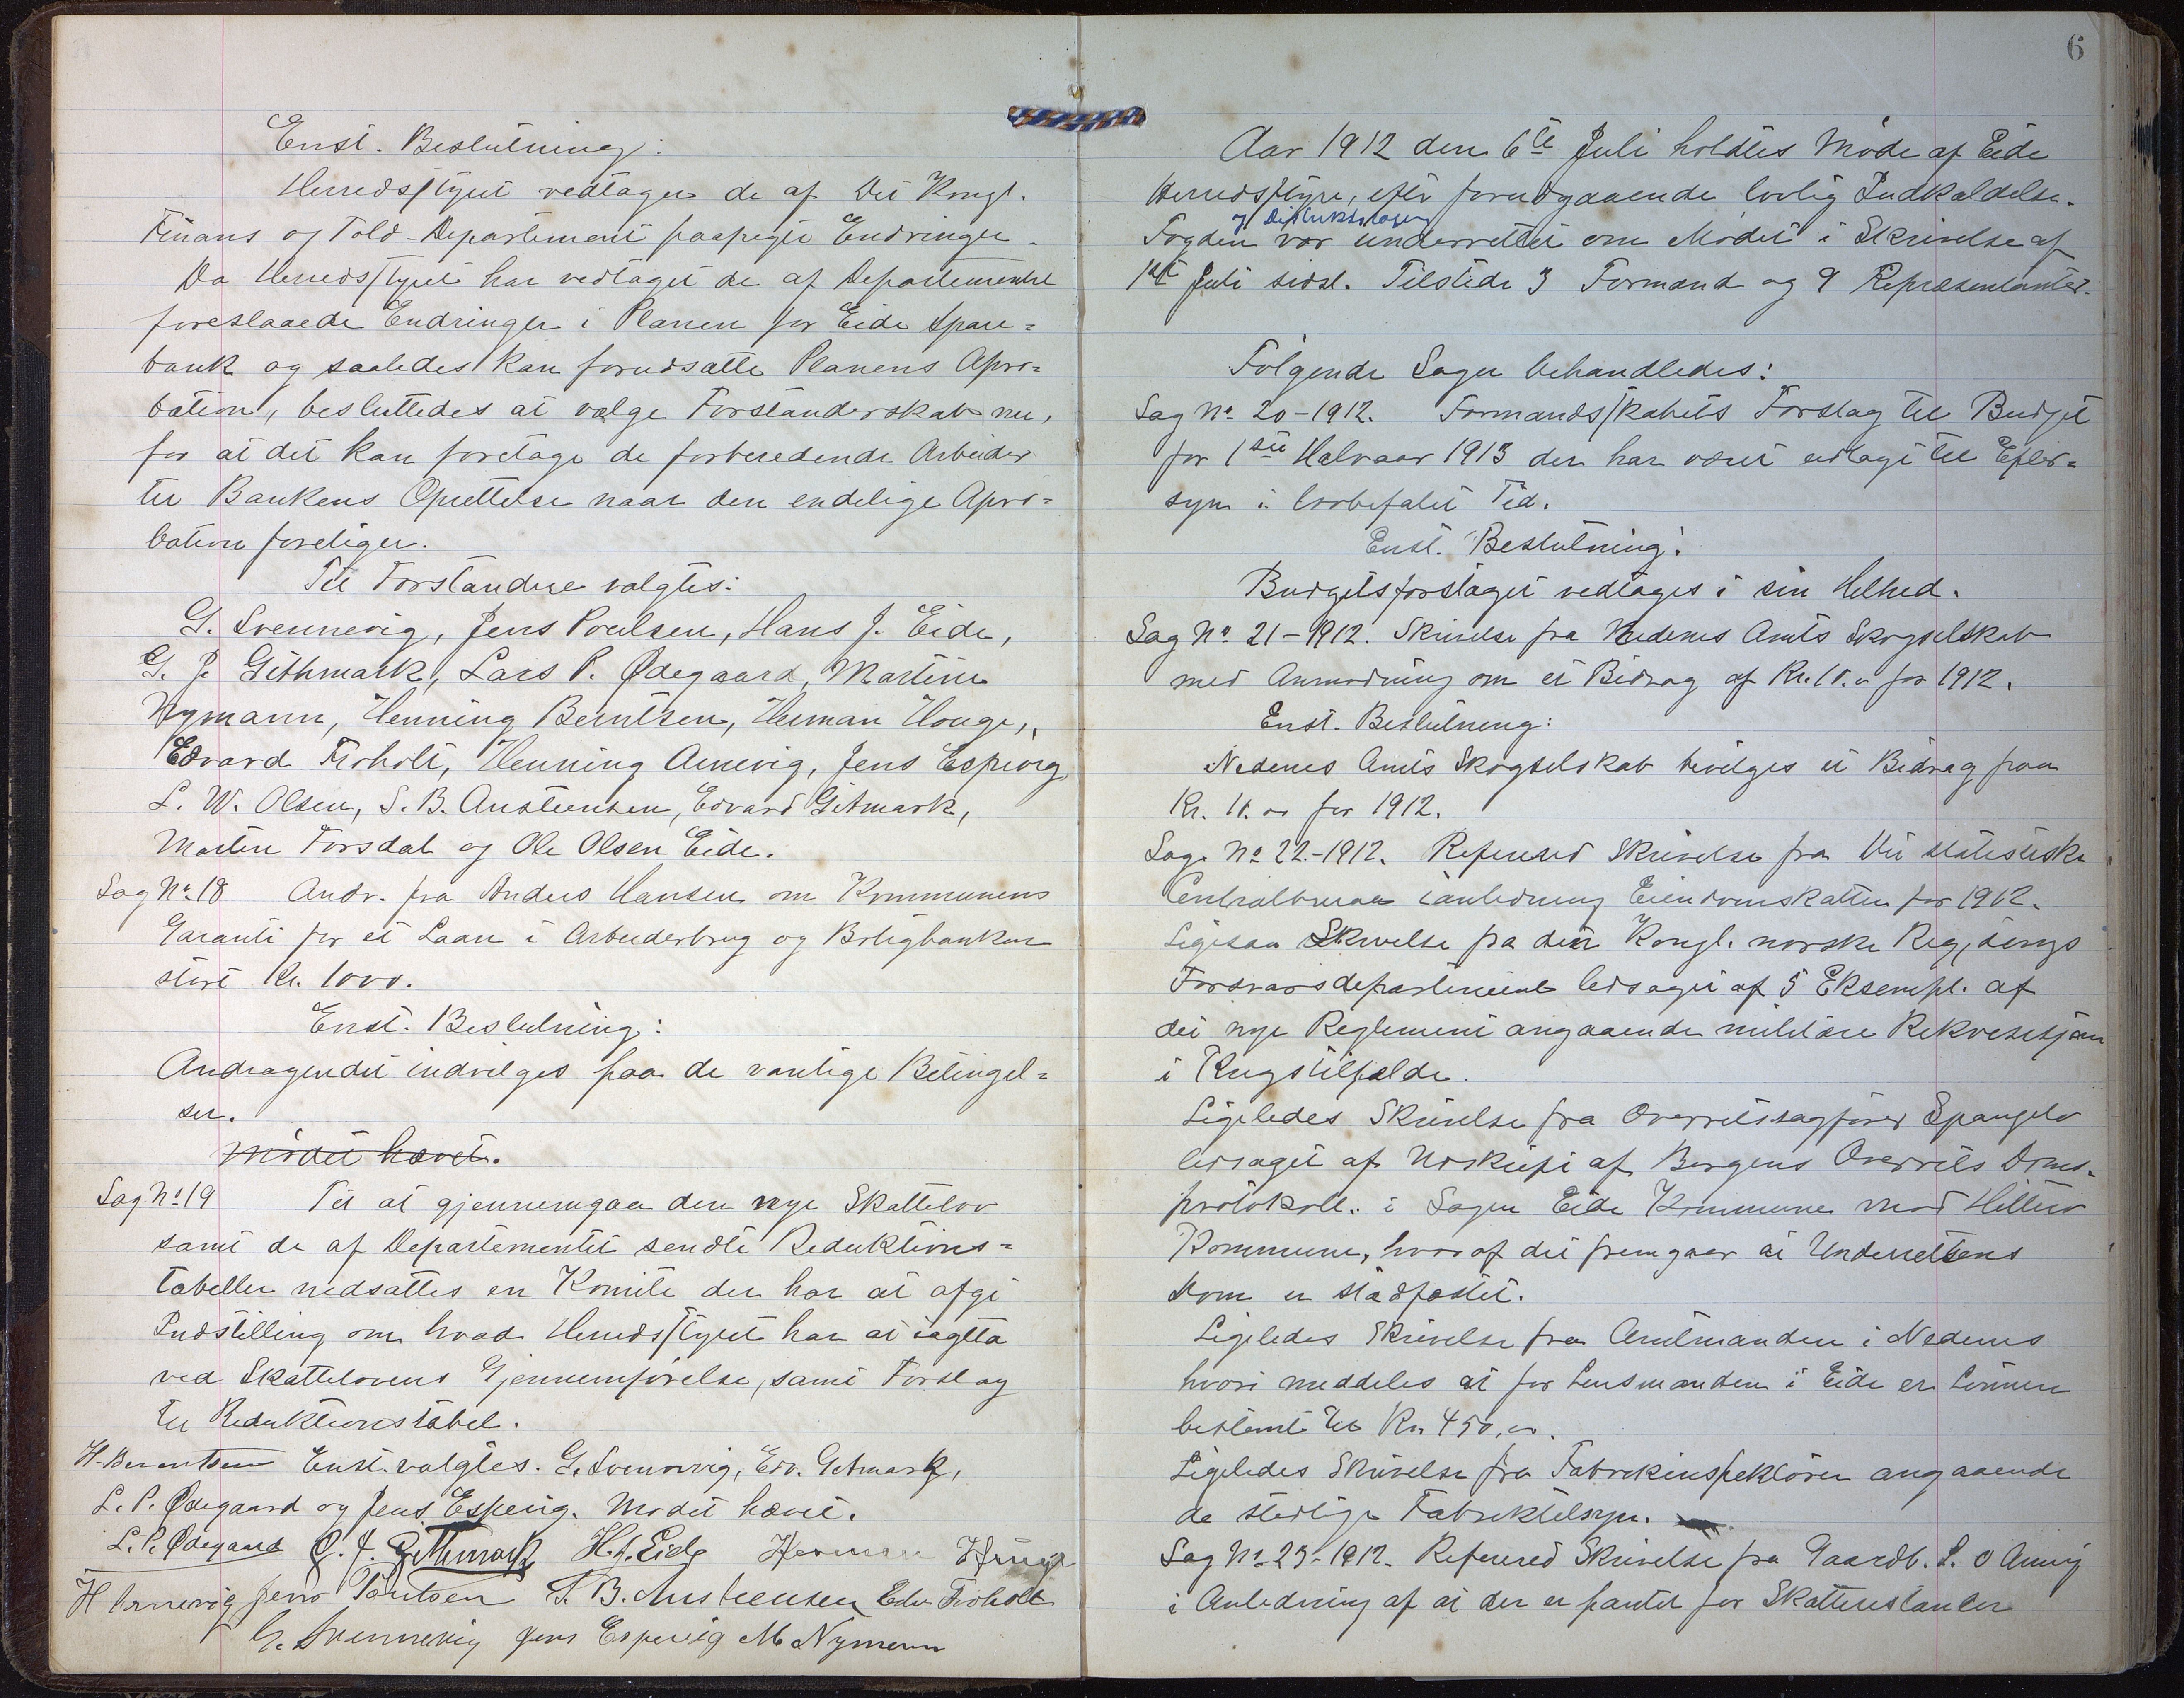 Enst. Beslutning:
Herredsstyret vedtager de af Det Kongl.
Finans og Told-Departement paapegte Endringer.
Da Herredsstyret har vedtaget de af Departementet
foreslaaede Endringer i Planen for Eide Spare=
bank og saaledes kan forudsætte Planens Apro=
bation, besluttedes at vælge Forstanderskab nu,
for at det kan foretage de forberedende Arbeider
til Bankens Oprettelse naar den endelige Apro=
bation foreligger.
Til Forstandere valgtes:
G. Svennevig, Jens Poulsen, Hans J. Eide,
G. J. Githmark, Lars P. Ødegaard, Martin
Nymann, Henning Berntsen, Herman Houge,
Edvard Froholt, Henning Arnevig, Jens Espevig
L. W. Olsen, S. B. Austeensen, Edvard Gitmark,
Martin Torsdal og Ole Olsen Eide.
Sag No. 18 Andr. fra Anders Hansen om Kommunens
Garanti for et Laan i Arbeiderbrug og Boligbanken
stort Kr. 1000.
Enst. Beslutning:
Andragendet indvilges paa de vanlige Betingel=
ser.
Mødet hævet.
Sag No 19 Til at gjennemgaa den nye Skattelov
samt de af Departementet sendte Reduktions=
tabeller nedsattes en Komite der har at afgi
Indstilling om hvad Herredsstyret har at iagtta
ved Skattelovens Gjennemførelse, samt Forslag
til Reduktionstabel.
H. Berentsen Enst. valgtes. G. Svennevig, Edv. Gitmark,
L. P. Ødegaard og Jens Espevig. Mødet hævet.
L. P. Ødegaard G. J. Githmark H. J. Eide Herman Houge
H Arnevig Jens Poulsen S. B. Austeensen Edv. Froholt
G. Svennevig Jens Espevig M Nymann
6
Aar 1912 den 6te Juli holdtes Møde af Eide
Herredsstyre, efter forudgaaende lovlig Indkaldelse.
og Distriktslægen
Fogden var underrettet om Mødet i Skrivelse af
1ste Juli sidst. Tilstede 3 Formænd og 9 Repræsentanter.
Følgende Sager behandledes:
Sag No 20-1912. Formandsskabets Forslag til Budget
for 1ste Halvaar 1913 der har været udlagt til Efter=
syn i lovbefalet Tid.
Enst. Beslutning:
Budgetsforslaget vedtages i sin Helhed.
Sag No 21-1912. Skrivelse fra Nedenes Amts Skogselskab
med Anmodning om et Bidrag af Kr. 10.00 for 1912.
Enst. Beslutning:
Nedenes Amts Skogselskab bevilges et Bidrag paa
Kr. 10.00 for 1912.
Sag No 22-1912. Referered Skrivelse fra Det statistiske
Centralbureau i anledning Eiendomskatten for 1912.
Ligesaa Skrivelse fra den Kongl. norske Regjerings
Forsvarsdepartement ledsaget af 5 Eksempl. af
det nye Reglement angaaende militære Rekvisitsjon
i Krigstilfælde.
Ligeledes Skrivelse fra Overretssagfører Spangelo
ledsaget af Udskrift af Bergens Overrets Doms-
protokoll. i Sagen Eide Kommune mod Hitterø
Kommune, hvoraf det fremgaar at Underrettens
Dom er stadfæstet.
Ligeledes Skrivelse fra Amtmanden i Nedenes
hvori meddeles at for Lensmanden i Eide er Lønnen
bestemt til Kr. 450,00.
Ligeledes Skrivelse fra Fabrikinspektøren angaaende
de stedlige Fabriktilsyn.
Sag No 23-1912. Refereret Skrivelse fra Gaardb. L. O
i Anledning af at der er pantet for Skatterestancer